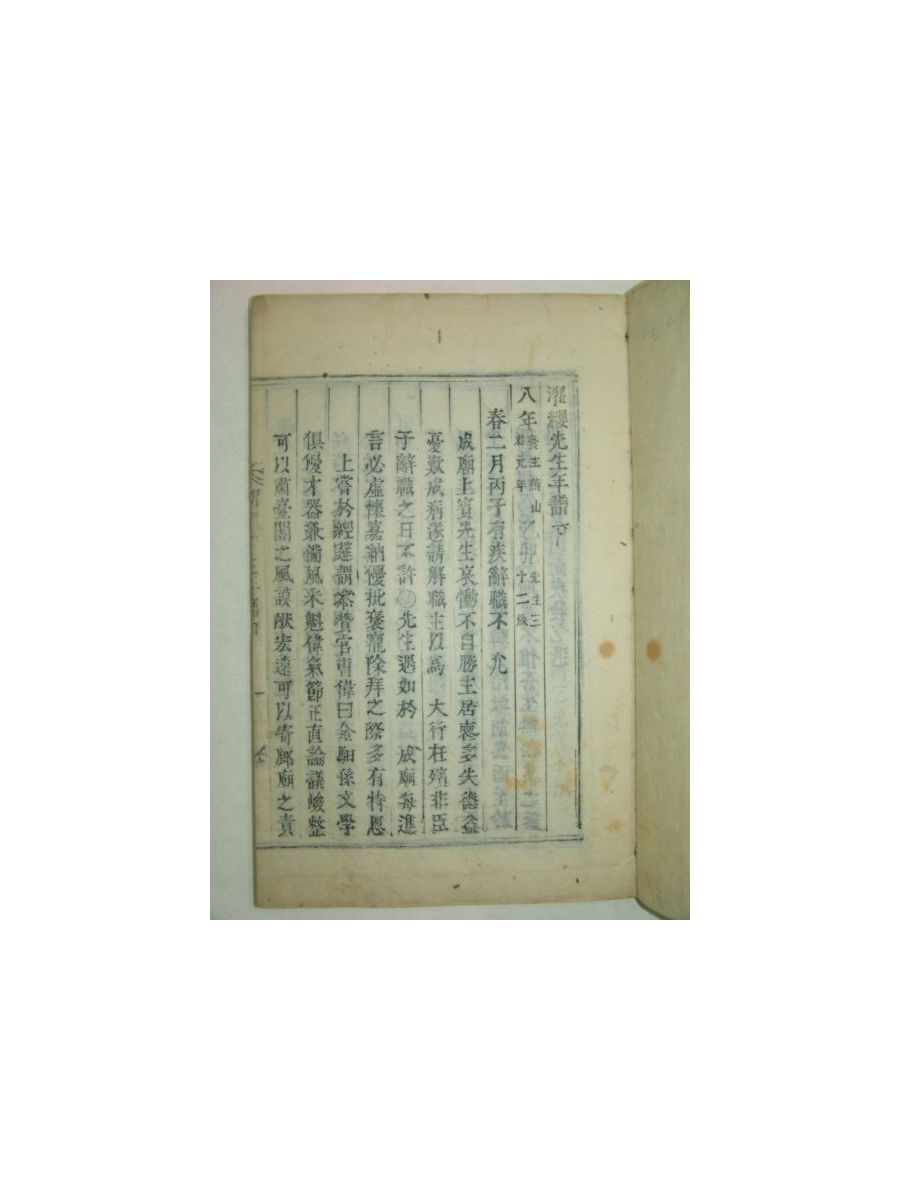 濯纓先生年譜下
八年 廢主燕山君元年 乙卯 先生三十二歲
春二月丙子有疾辭職不 允
成廟上賓先生哀慟不自勝主居喪多失德益
憂歎成病遂請解職主以爲 大行在殯非臣
子辭職之日不許○先生遇知於 成廟每進
言必虛懷嘉納優批褒寵除拜之際多有特恩
上嘗於經筵謂 官曺偉曰金馹孫文學
俱優才器兼備風采魁偉氣節正直論議峻整
可以蘭臺閣之風謨猷宏遠可以寄廊廟之責